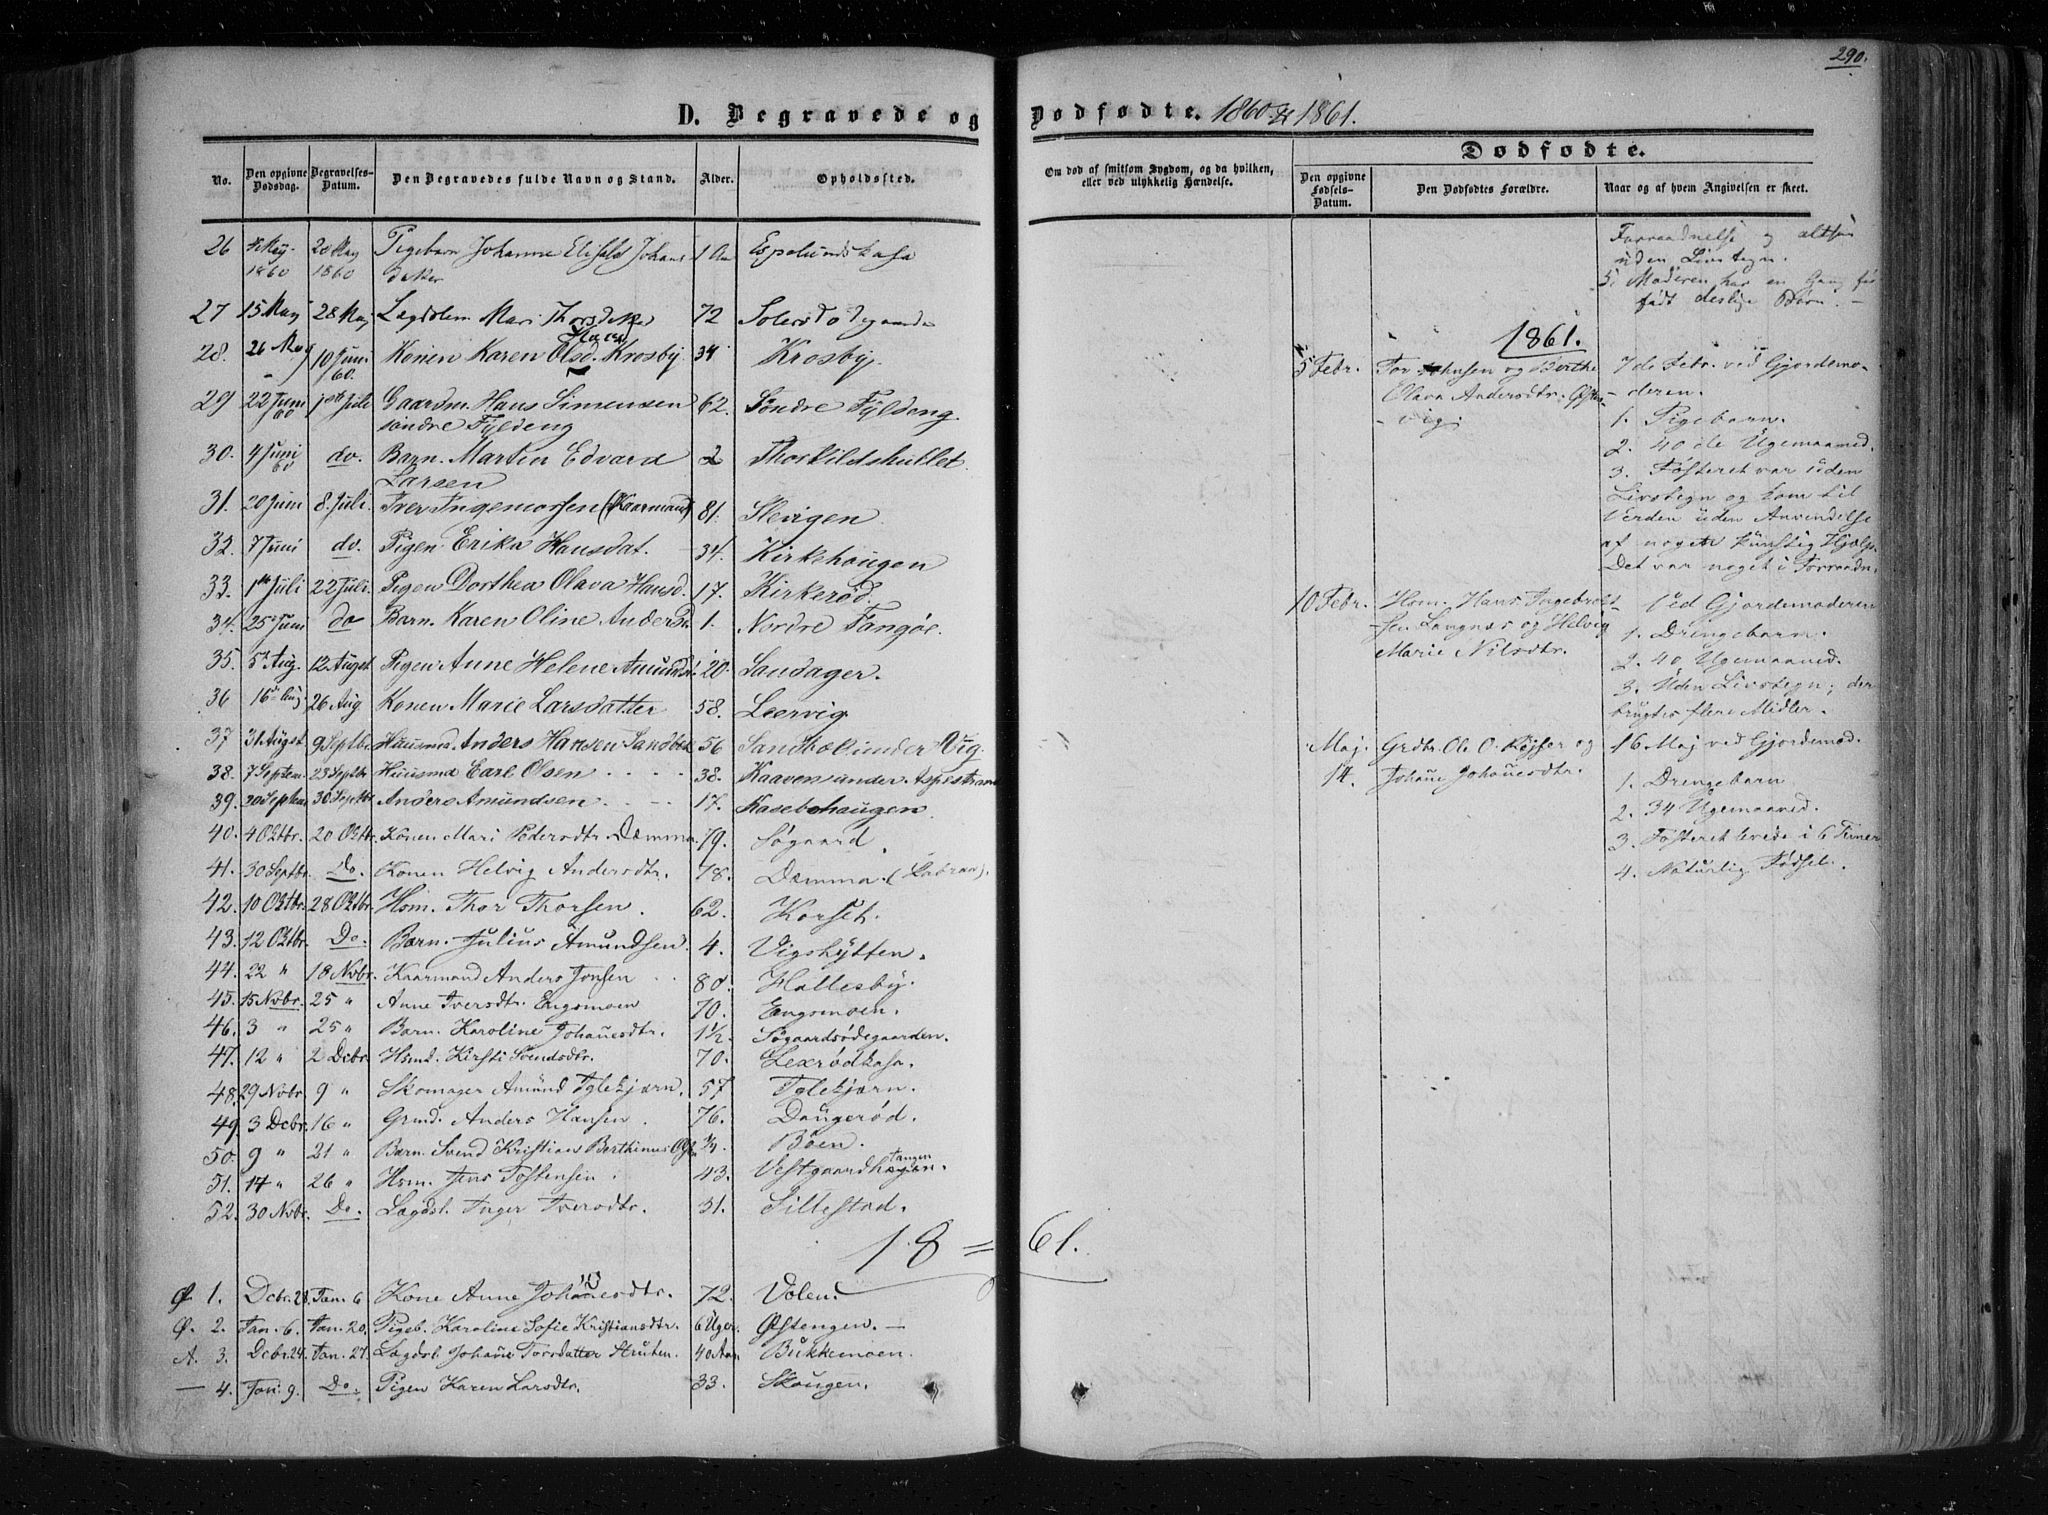 290.
D. Begravede og Dødfødte. 1860 & 1861.
No. Den opgivne Dødsdag. Begravelses-Datum. Den Begravedes fulde Navn og Stand. Alder. Opholdssted.
Om død af smitsom Sygdom, og da hvilken, eller ved ulykkelig Hændelse.
Dødfødte.
Den opgivne Fødsels-Datum. Den Dødfødtes Forældre. Naar og af hvem Angivelsen er skeet.
26 May 1860 20 May 1860 Pigebarn Johanne Johans
datter
27 15 May 28 May Lægdslem Mari Thorsdatter 72
28. 26 May 10 Juni 60. Konen Karen Olsd. Krosby 34 Krosby.
29 22 Juni 60 1ste Juli Gaardm. Hans Simensen 62. Søndre Fyldeng.
søndre Fyldeng
30. 4 Juni 60 do. Barn. Martin Edvard 2 Thorkildshullet.
Larsen
31. 20 Juni 8 Juli. Iver Ingemorsen (Kaarmand) 81. Slevigen
32. 7 Juni do. Pigen Erika Hansdat. 34. Kirkehougen
33. 1ste Juli 22 Juli. Pigen Dorthea Olava Hansd. 17. Kirkerød.
34. 25 Juni do Barn. Karen Oline Anders 1. Nordre
35. 5 Aug. 12 August Pigen Anne Helene Amunds 20. Sandager.
36 16 Aug. 26 Aug Konen Marie Larsdatter 58. Leervig
37 31 August 9 Septbr. Huusmd Anders Hansen Sandbek 56 Sandbæk under Vig.
38. 7 Septem 23 Septbr Huusmd Carl Olsen 38. Kaaven under
39. 20 Septem 30 Septbr Anders Amundsen 17. Kasebohaugen.
40. 4 Oktbr. 20 Oktbr. Konen Mari Pedersdtr. Damma 79. Søgaard.
41. 30 Septbr. Do. Konen Helvig Andersdtr. 78. Damma.
42. 10 Oktbr. 28 Oktbr. Hsm. Thor Thorsen. 62. Korset.
43. 12 Oktbr. Do. Barn. Julius Amundsen. 4. Vigshytten.
44. 22 " 18 Nvbr. Kaarmand Anders Jonsen 80. Hallesby.
45. 15 Nvbr. 25 " Anne Iversdtr. Engsmoen 70. Engsmoen.
46. 3 " 25 " Barn. Karoline Johanesdtr. 1½. Søgaardsødegaarden.
47. 12 " 2 Dcbr. Hsmd. Kirsti Svendsdtr. 70. Lexrødkasa.
48. 29 Nvbr. 9 " Skomager Amund Iglekjærn. 57 Iglekjærn.
49. 3 Dcbr. 16 " Grmd. Anders Hansen. 76. Daugerød.
50. 9 " 21 " Barn. Svend Kristian Barthinus ¼. Böen.
51. 14 " 26 " Hsm. Jens Tostensen. 43. Vestgaardhagen. Tangen
52. 30 Nvbr. Do. Lægdsl. Inger Iversdtr. 31. Sillestad.
18 = 61.
Ø 1. Dcbr. 28. Jan. 6 Kone Anne Johanesdtr. 72. Volen.
Ø. 2. Jan. 6. Jan. 20. Pigeb. Karoline Sofie Kristiansdtr. 6 Uger. Østengen. —
A. 3. Dcbr. 24. Jan. 27. Lægdsl. Johane Torsdatter Struten. 40 Aar Bukkemoen.
— 4. Jan. 9. Do. Pigen Karen Larsdtr. 33. Skougen.
Forraadnelse og altsaa
uden Livstegn.
5. Moderen har en Gang før
født deslige Børn. —
1861.
5 Febr. Tor Johnsen og Berthe 7de Febr. ved Gjordemo-
Olava Andersdtr. -deren.
-vig. 1. Pigebarn.
2. 40 de Ugemaaned.
3. Fosteret var uden
Livstegn og kom til
Verden uden Anvendelse
af nogen kunstig Hjælp.
Det var noget i Forraadn.
10 Febr. Hsm. Hans Ingebrekt- Ved Gjordemoderen
-sen Langnæs og Helvig 1. Drengebarn.
Marie Nilsdtr. 2. 40 Ugemaaned.
3. Uden Livstegn; der
brugtes flere Midler.
Maj 14. Grdbr. Ole O. Röjser og 16 Maj ved Gjordemod.
Johane Johanesdtr. 1. Drengebarn
2. 34 Ugemaaned.
3. Fosteret levede i 6 Timer
4. Naturlig Fødsel.